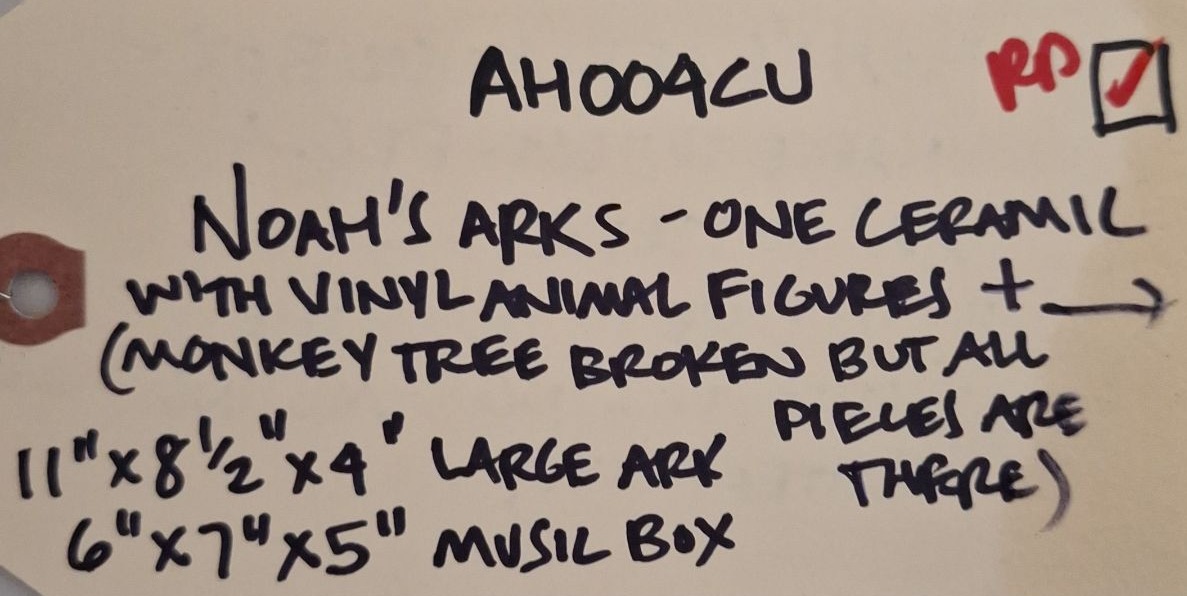 AH009CU RD ✓
NOAH'S ARKS - ONE CERAMIC
WITH VINYL ANIMAL FIGURES + →
(MONKEY TREE BROKEN BUT ALL
PIECES ARE
THERE)
11" x 8 1/2" x 4" LARGE ARK
6" x 7" x 5" MUSIC BOX